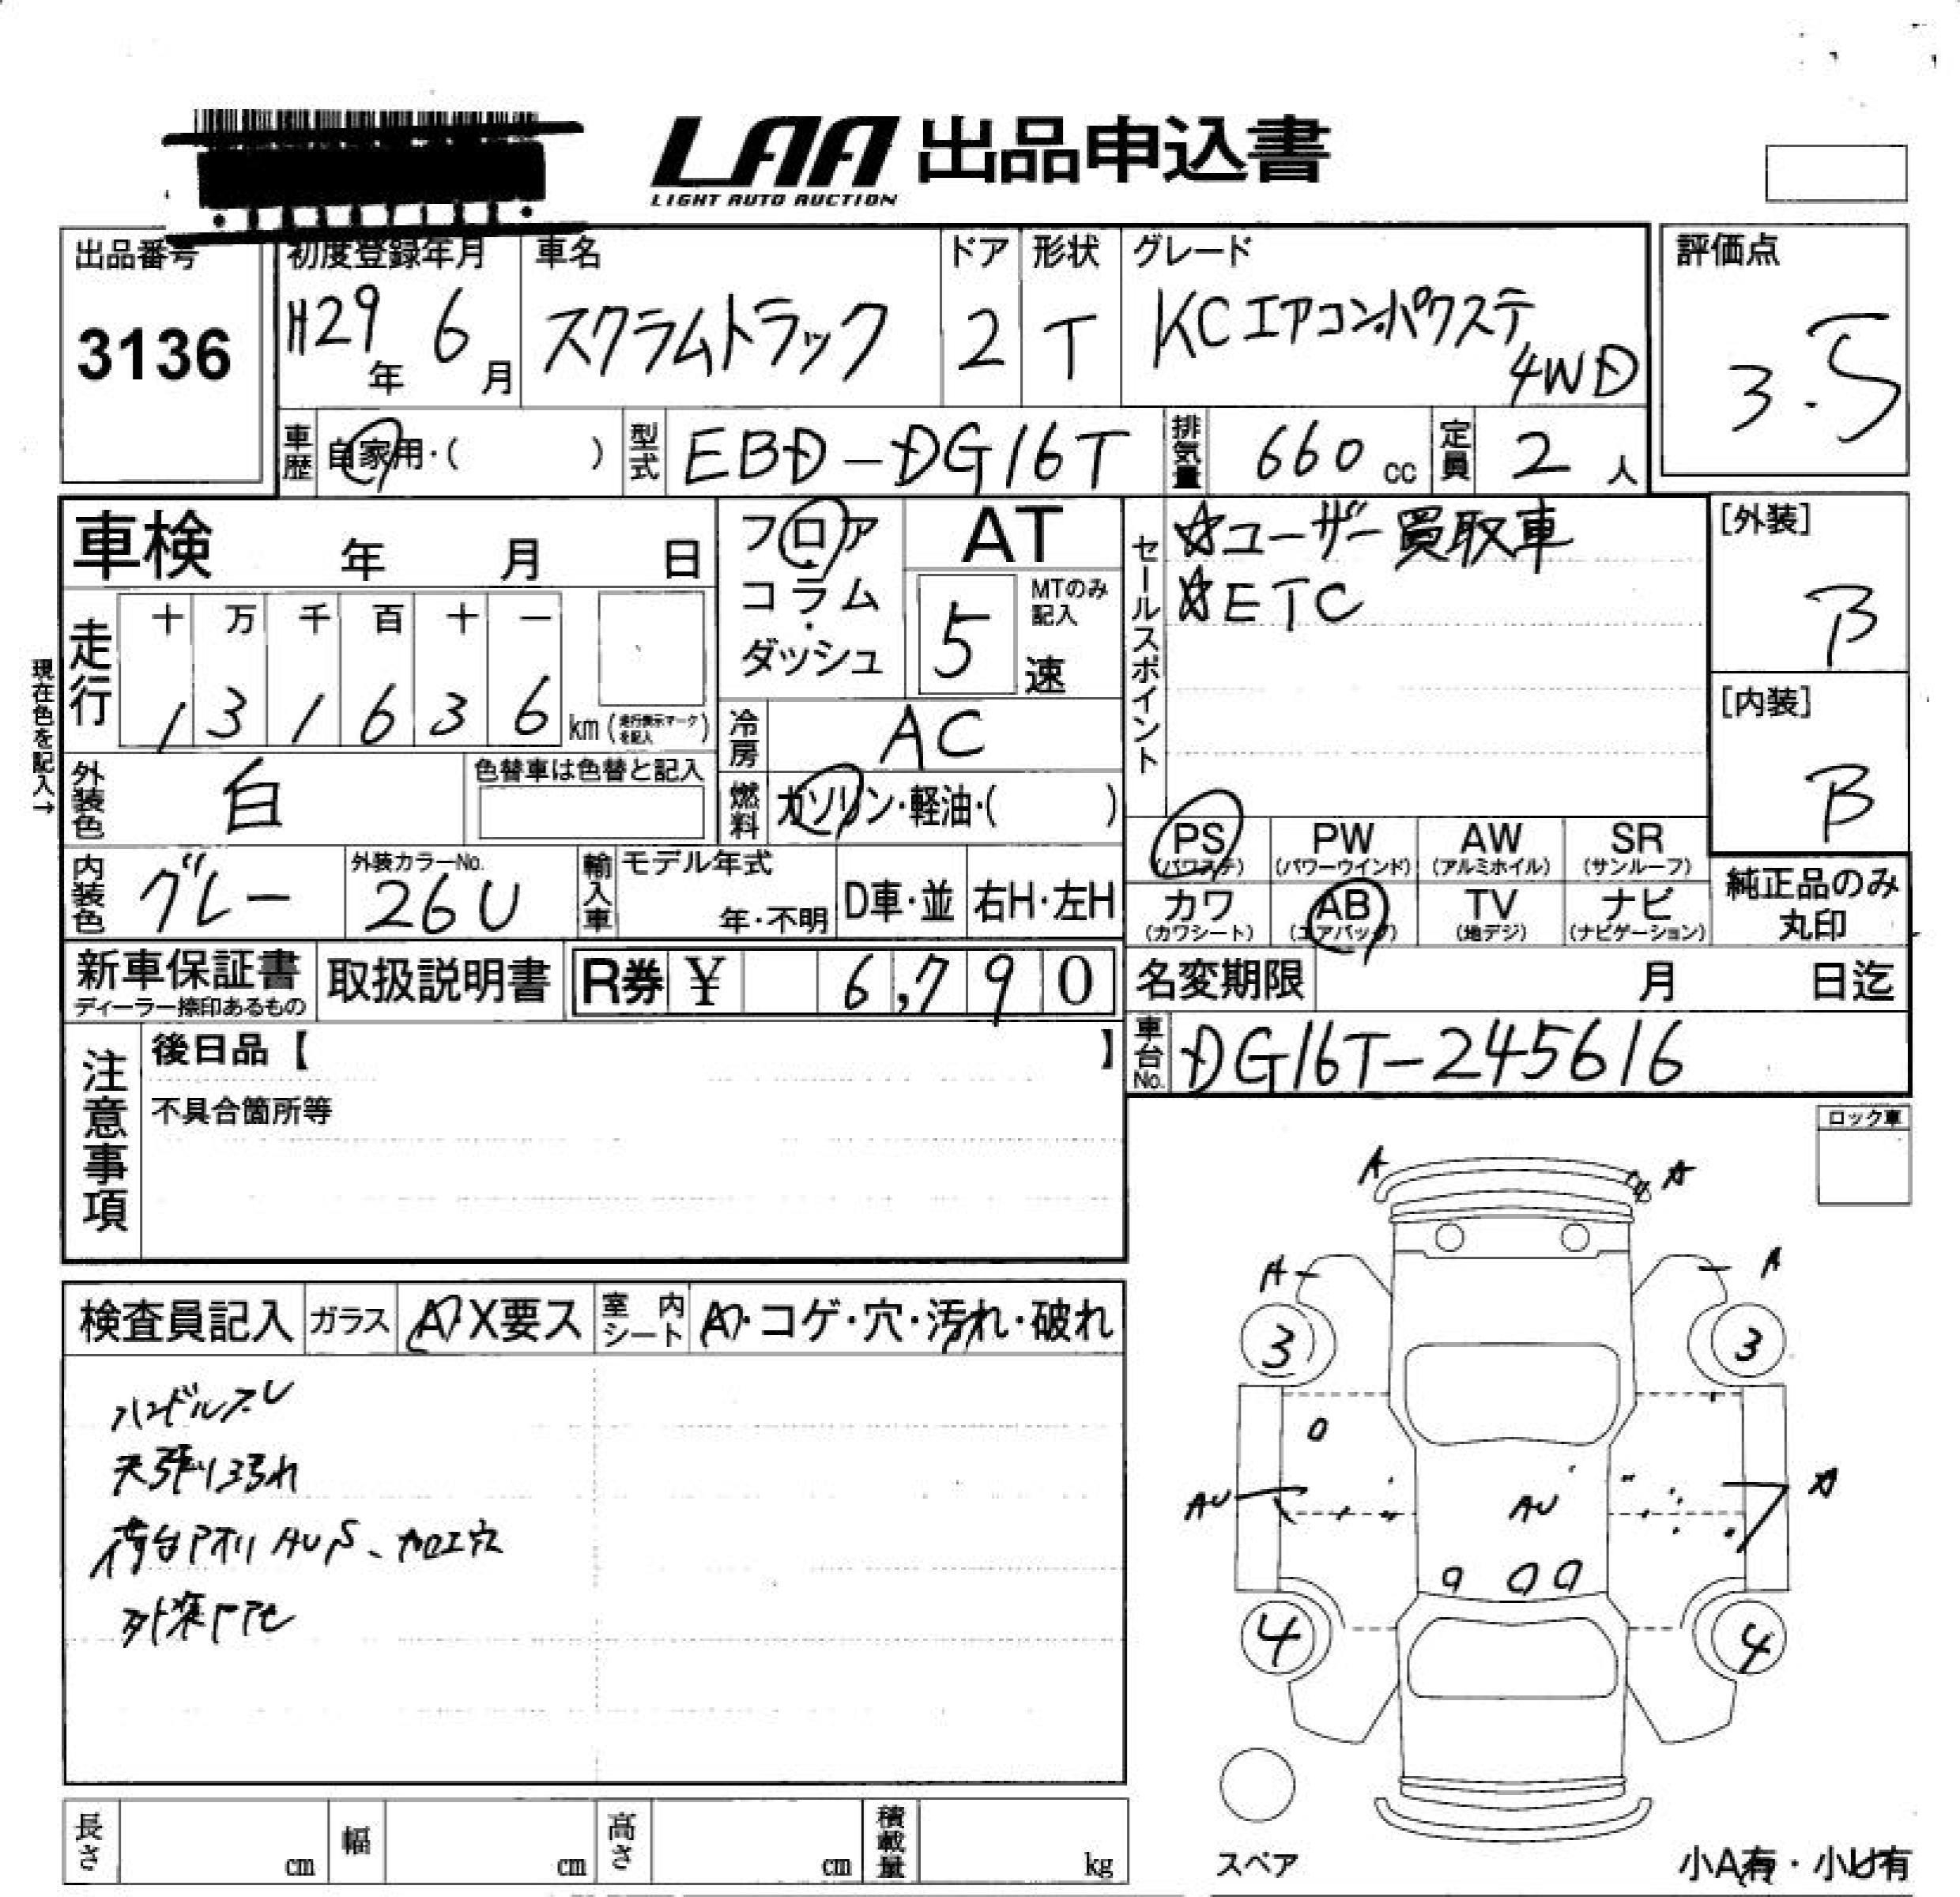 LAA 出品申込書
LIGHT AUTO AUCTION
出品番号
3136
初度登録年月
H29年 6月
車名
スクラムトラック
ドア
2
形状
T
グレード
KCエアコン・パワステ
4WD
評価点
3.5
車歴 自家用・( )
型式 EBD-DG16T
排気量 660 cc
定員 2 人
車検 年 月 日
現在色を記入→
走行 十 万 千 百 十 一
1 3 1 6 3 6 km (走行表示マークを記入)
フロア・コラム・ダッシュ
AT
5 速
MTのみ記入
冷房 AC
燃料 ガソリン・軽油・( )
外装色 白
色替車は色替と記入
内装色 グレー
外装カラーNo.
26U
輸入車
モデル年式
年・不明
D車・並
右H・左H
セールスポイント
☆ユーザー買取車
☆ETC
[外装]
B
[内装]
B
PS (パワステ)
PW (パワーウインド)
AW (アルミホイル)
SR (サンルーフ)
カワ (カワシート)
AB (エアバッグ)
TV (地デジ)
ナビ (ナビゲーション)
純正品のみ
丸印
新車保証書
ディーラー捺印あるもの
取扱説明書
R券 ¥ 6,790
名変期限 月 日迄
車台No. DG16T-245616
注意事項
後日品【 】
不具合箇所等
ロック車
検査員記入
ガラス A・X要ス
室内シート A・コゲ・穴・汚れ・破れ
ハンドルスレ
天張り汚れ
荷台アオリ AUS、加工穴
外装
A A
A A
3 3
AU AU A
4 4
スペア
小A有・小U有
長さ cm
幅 cm
高さ cm
積載量 kg